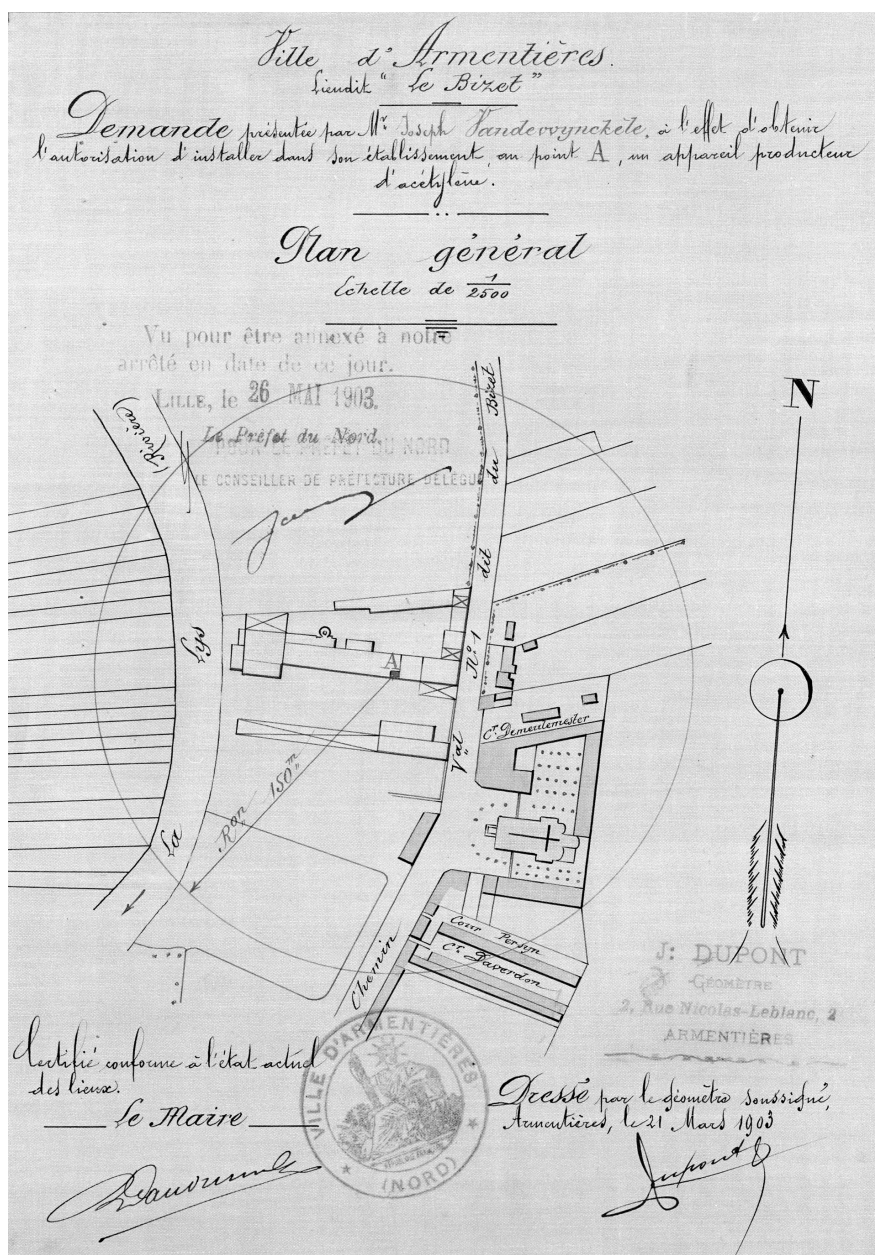 Ville d'Armentières.
Lieudit "Le Bizet"
Demande présentée par Mr. Joseph Vandewynckèle, à l'effet d'obtenir
l'autorisation d'installer dans son établissement, au point A, un appareil producteur
d'acétylène.
Plan général
Echelle de 1/2500
Vu pour être annexé à notre
arrêté en date de ce jour.
LILLE, le 26 MAI 1903.
Le Préfet du Nord,
POUR LE PRÉFET DU NORD
LE CONSEILLER DE PRÉFECTURE DÉLÉGUÉ
N
La Lys (Rivière)
Chemin Val N° 1 dit du Bizet
A
Ron 150m
Cr. Demeulemester
Cour Persyn
Cr. Daverdon
J: DUPONT
GÉOMÈTRE
2, Rue Nicolas-Leblanc, 2
ARMENTIÈRES
Certifié conforme à l'état actuel
des lieux.
Le Maire
VILLE D'ARMENTIÈRES
(NORD)
Dressé par le géomètre soussigné,
Armentières, le 21 Mars 1903
Dupont